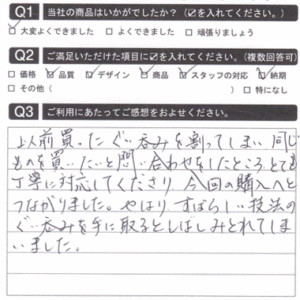 Q1 当社の商品はいかがでしたか？（☑を入れてください。）
☑大変よくできました □よくできました □頑張りましょう
Q2 ご満足いただけた項目に☑を入れてください。（複数回答可）
□価格 ☑品質 ☑デザイン ☑商品 ☑スタッフの対応 ☑納期
□その他（ ）□特になし
Q3 ご利用にあたってご感想をおよせください。
以前買ったぐい呑みを割ってしまい同じ
ものを買いたいと問い合わせをしたところとても
丁寧に対応してくださり今回の購入へと
つながりました。やはりすばらしい技法の
ぐい呑みを手に取るとしばしみとれてしま
いました。